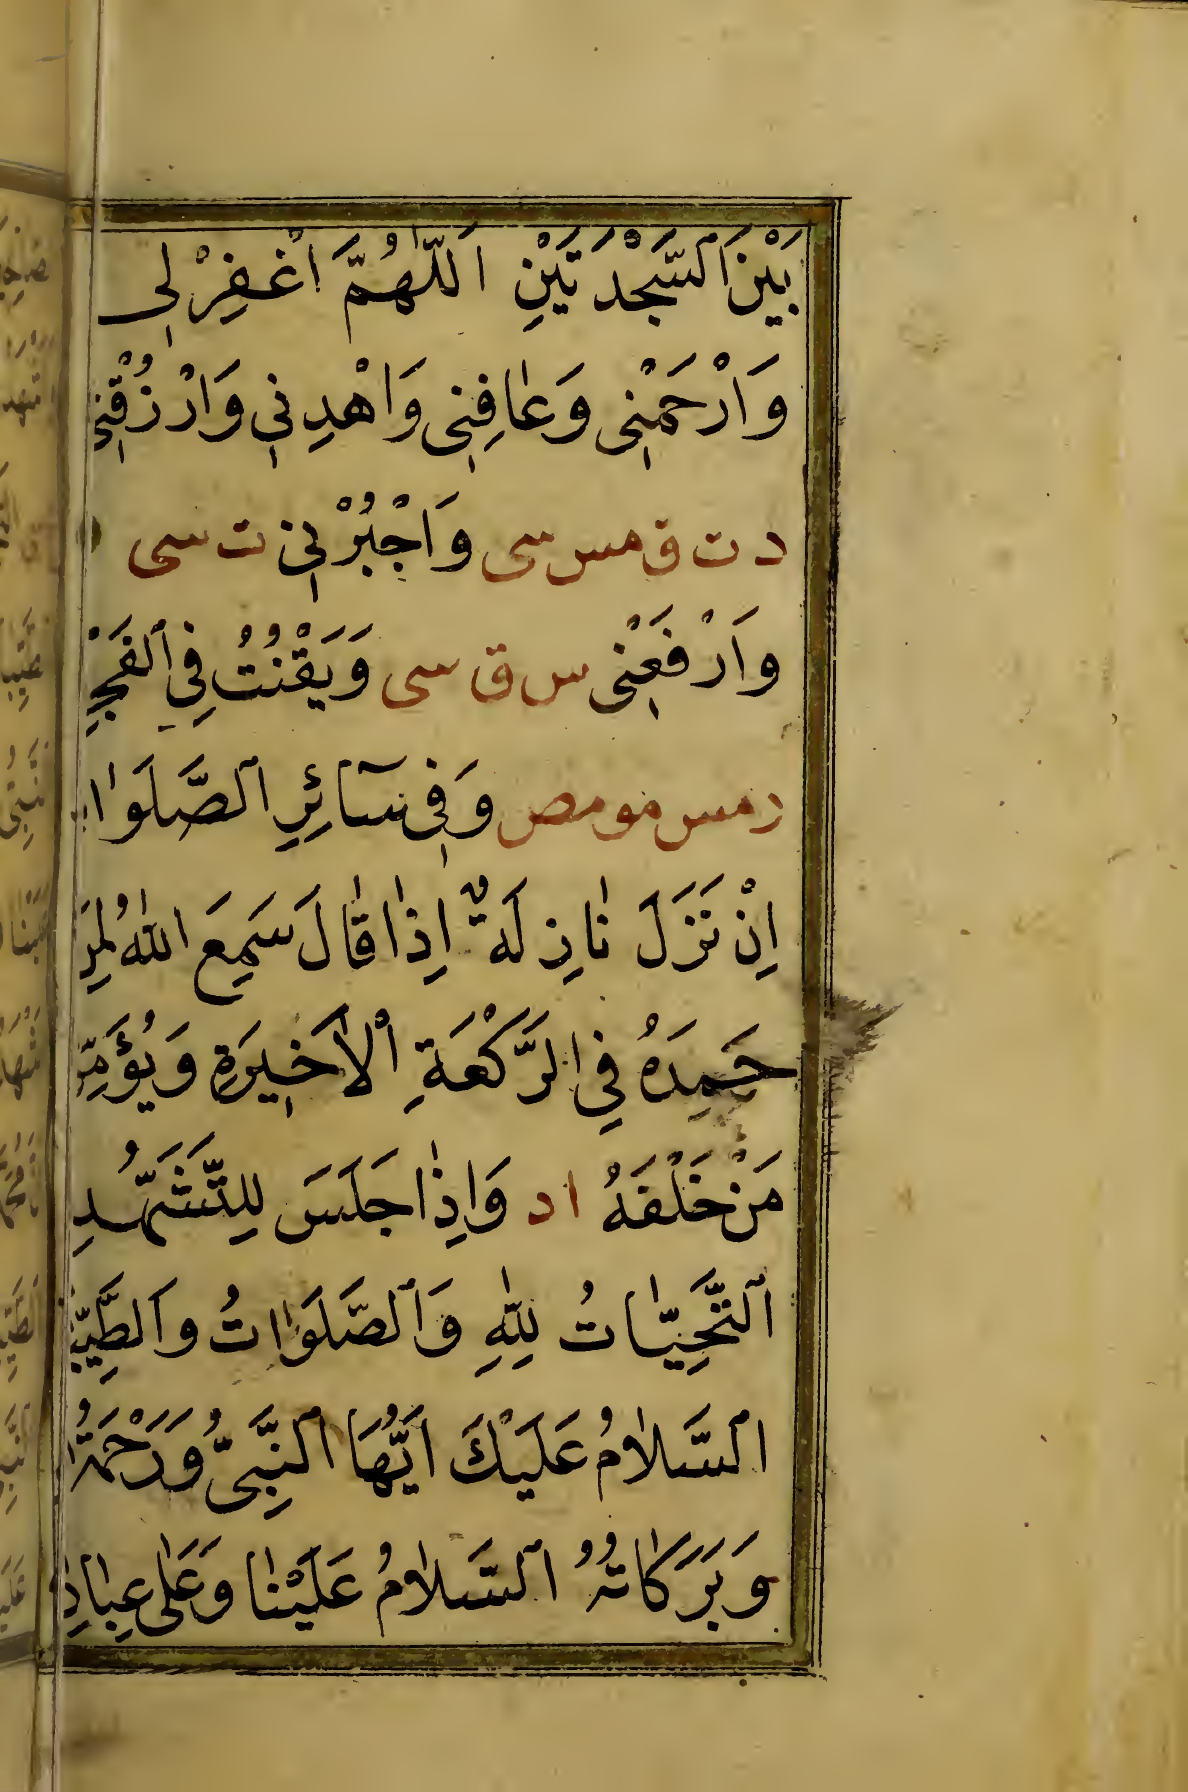 بَيْنَ السَّجْدَتَيْنِ اَللّٰهُمَّ اغْفِرْ لِى
وَارْحَمْنِى وَعَافِنِى وَاهْدِنِى وَارْزُقْنِى
د ت ق مس سى وَاجْبُرْنِى ت سى
وَارْفَعْنِى س ق سى وَيَقْنُتُ فِى الْفَجْرِ
ر مس مو مص وَفِى سَآئِرِ الصَّلَوَاتِ
اِنْ نَزَلَ نَازِلَةٌ اِذَا قَالَ سَمِعَ اللّٰهُ لِمَنْ
حَمِدَهُ فِى الرَّكْعَةِ الْاَخِيرَةِ وَيُؤَمِّنُ
مَنْ خَلْفَهُ ا د وَاِذَا جَلَسَ لِلتَّشَهُّدِ
اَلتَّحِيَّاتُ لِلّٰهِ وَالصَّلَوَاتُ وَالطَّيِّبَاتُ
اَلسَّلَامُ عَلَيْكَ اَيُّهَا النَّبِىُّ وَرَحْمَةُ
وَبَرَكَاتُهُ اَلسَّلَامُ عَلَيْنَا وَعَلٰى عِبَادِ